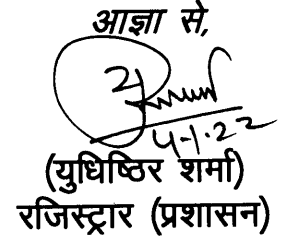 आज्ञा से,
4-1-22
(युधिष्ठिर शर्मा)
रजिस्ट्रार (प्रशासन)